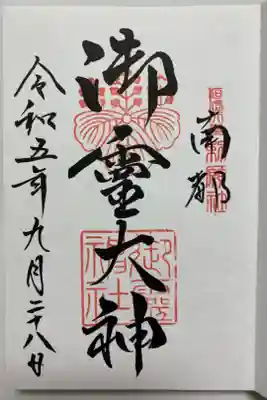 南都
御靈大神
御靈神社
令和五年九月二十八日